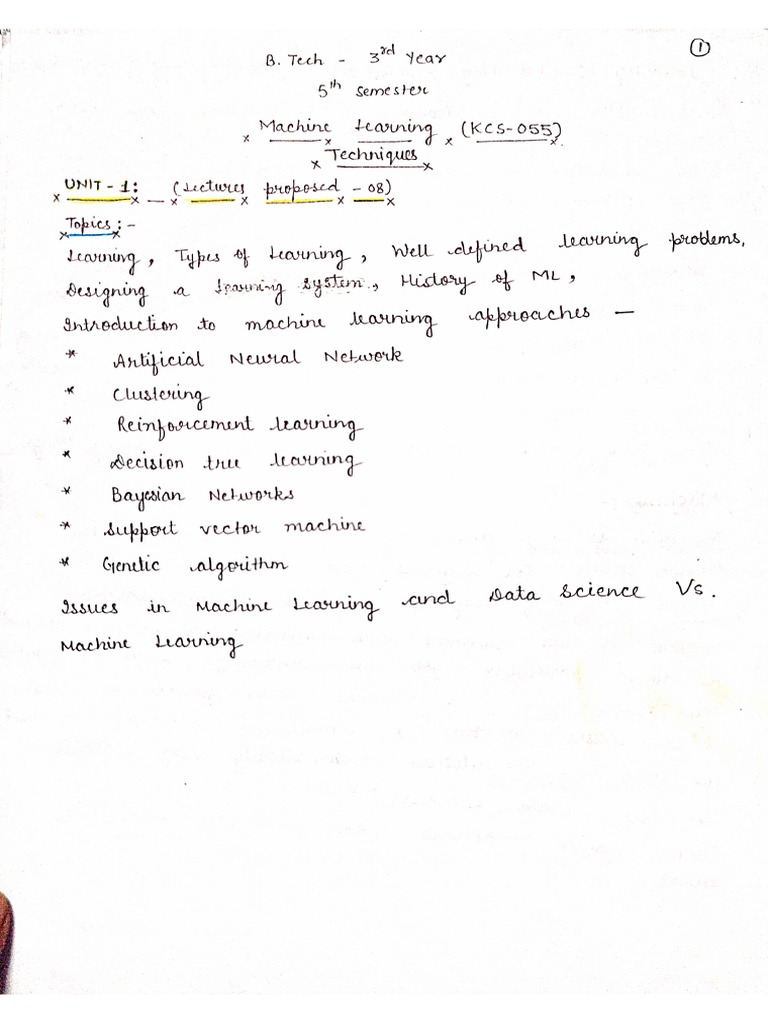 ①
B. Tech - 3rd Year
5th Semester
Machine Learning (KCS-055)
Techniques
UNIT - 1: - (Lectures proposed - 08)
Topics :-
Learning, Types of Learning, Well defined learning problems,
Designing a Learning System, History of ML,
Introduction to machine learning approaches -
* Artificial Neural Network
* Clustering
* Reinforcement learning
* Decision tree learning
* Bayesian Networks
* Support vector machine
* Genetic algorithm
Issues in Machine Learning and Data Science Vs.
Machine Learning